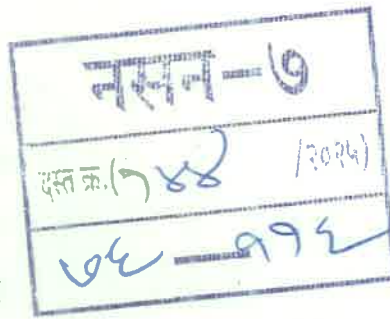 नसन-७
दस्त क्र.(१४४ /२०२५)
७६ — ११६